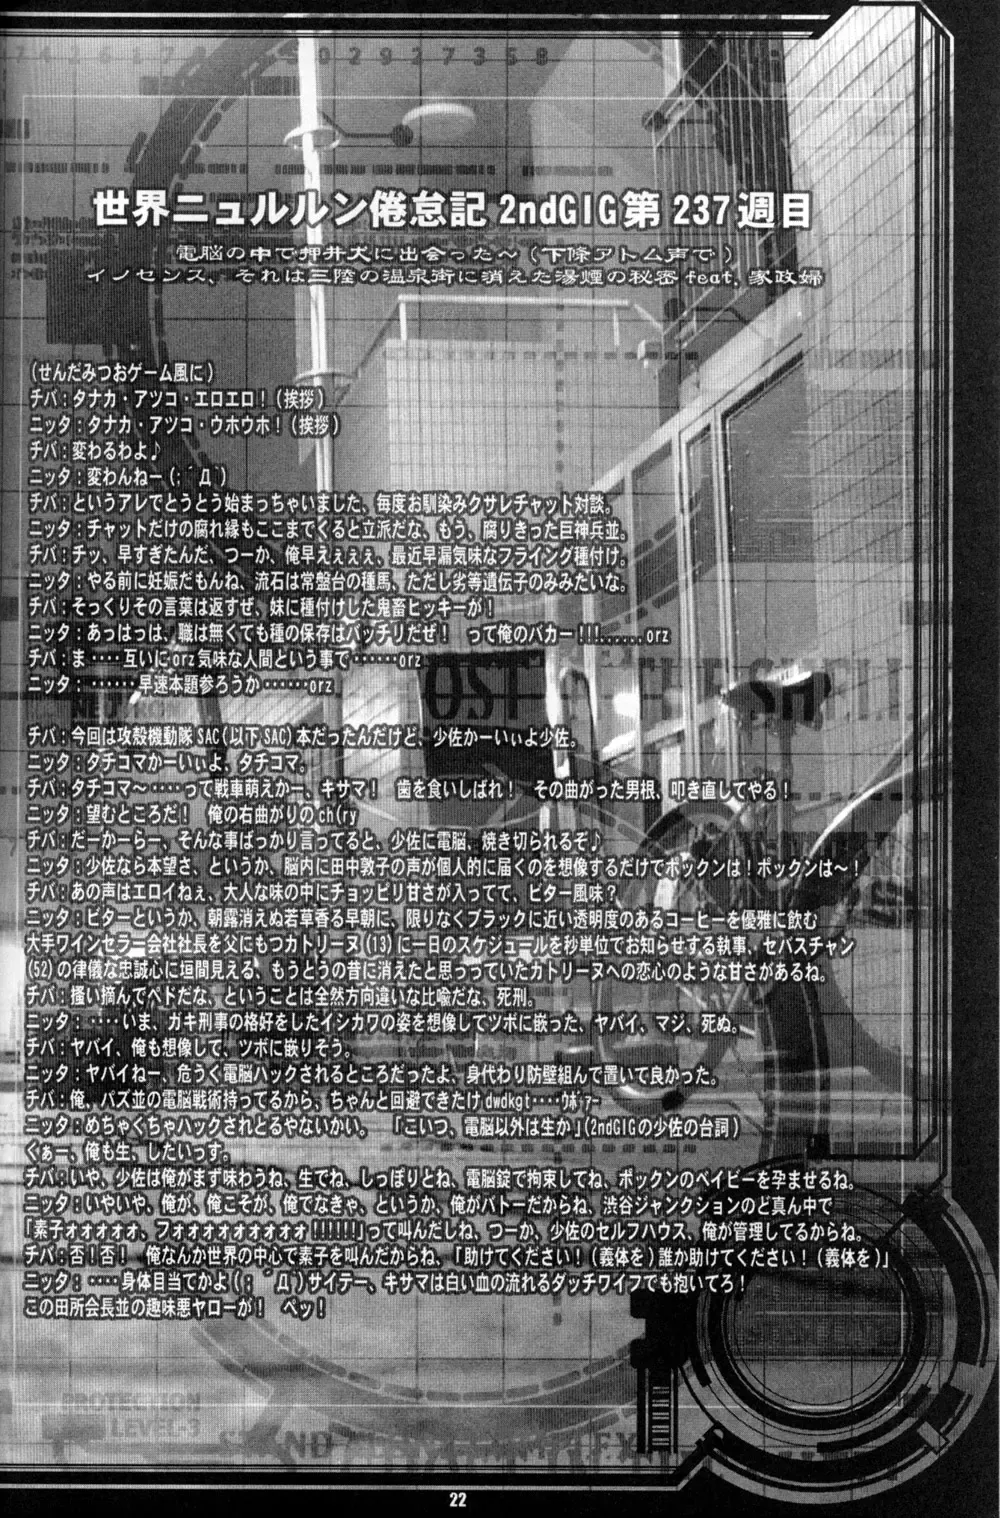 世界ニュルルン倦怠記 2ndGIG第 237週目
電脳の中で押井犬に出会った～（下條アトム声で）
イノセンス、それは三陸の温泉街に消えた湯煙の秘密 feat. 家政婦
（せんだみつおゲーム風に）
チバ：タナカ・アツコ・エロエロ！（挨拶）
ニッタ：タナカ・アツコ・ウホウホ！（挨拶）
チバ：変わるわよ♪
ニッタ：変わんねー（；´Д`）
チバ：というアレでとうとう始まっちゃいました、毎度お馴染みクサレチャット対談。
ニッタ：チャットだけの腐れ縁もここまでくると立派だな、もう、腐りきった巨神兵並。
チバ：チッ、早すぎたんだ、つーか、俺早えぇぇぇ、最近早漏気味なフライング種付け。
ニッタ：やる前に妊娠だもんね、流石は常盤台の種馬、ただし劣等遺伝子のみみたいな。
チバ：そっくりその言葉は返すぜ、妹に種付けした鬼畜ヒッキーが！
ニッタ：あっはっは、職は無くても種の保存はバッチリだぜ！　って俺のバカー！！！……orz
チバ：ま‥‥互いにorz気味な人間という事で……orz
ニッタ：‥……早速本題参ろうか……orz
チバ：今回は攻殻機動隊SAC（以下SAC）本だったんだけど、少佐かーいぃよ少佐。
ニッタ：タチコマかーいぃよ、タチコマ。
チバ：タチコマ～‥‥って戦車萌えかー、キサマ！　歯を食いしばれ！　その曲がった男根、叩き直してやる！
ニッタ：望むところだ！　俺の右曲がりのch(ry
チバ：だーかーらー、そんな事ばっかり言ってると、少佐に電脳、焼き切られるぞ♪
ニッタ：少佐なら本望さ、というか、脳内に田中敦子の声が個人的に届くのを想像するだけでボックンは！ボックンは～！
チバ：あの声はエロイねぇ、大人な味の中にチョッピリ甘さが入ってて、ビター風味？
ニッタ：ビターというか、朝露消えぬ若草香る早朝に、限りなくブラックに近い透明度のあるコーヒーを優雅に飲む
大手ワインセラー会社社長を父にもつカトリーヌ（13）に一日のスケジュールを秒単位でお知らせする執事、セバスチャン
（52）の律儀な忠誠心に垣間見える、もうとうの昔に消えたと思っっていたカトリーヌへの恋心のような甘さがあるね。
チバ：掻い摘んでペドだな、ということは全然方向違いな比喩だな、死刑。
ニッタ：‥‥いま、ガキ刑事の格好をしたイシカワの姿を想像してツボに嵌った、ヤバイ、マジ、死ぬ。
チバ：ヤバイ、俺も想像して、ツボに嵌りそう。
ニッタ：ヤバイねー、危うく電脳ハックされるところだったよ、身代わり防壁組んで置いて良かった。
チバ：俺、パズ並の電脳戦術持ってるから、ちゃんと回避できたけdwdkgt‥‥ｳﾎﾞｧｰ
ニッタ：めちゃくちゃハックされとるやないかい。　「こいつ、電脳以外は生か」（2ndGIGの少佐の台詞）
くぁー、俺も生、したいっす。
チバ：いや、少佐は俺がまず味わうね、生でね、しっぽりとね、電脳錠で拘束してね、ボックンのベイビーを孕ませるね。
ニッタ：いやいや、俺が、俺こそが、俺でなきゃ、というか、俺がバトーだからね、渋谷ジャンクションのど真ん中で
「素子ォォォォォ、フォォォォォォォォォ！！！！！！」って叫んだしね、つーか、少佐のセルフハウス、俺が管理してるからね。
チバ：否！否！　俺なんか世界の中心で素子を叫んだからね、「助けてください！（義体を）誰か助けてください！（義体を）」
ニッタ：‥‥身体目当てかよ（；´Д`）サイテー、キサマは白い血の流れるダッチワイフでも抱いてろ！
この田所会長並の趣味悪ヤローが！　ペッ！
PROTECTION
LEVEL-3
22